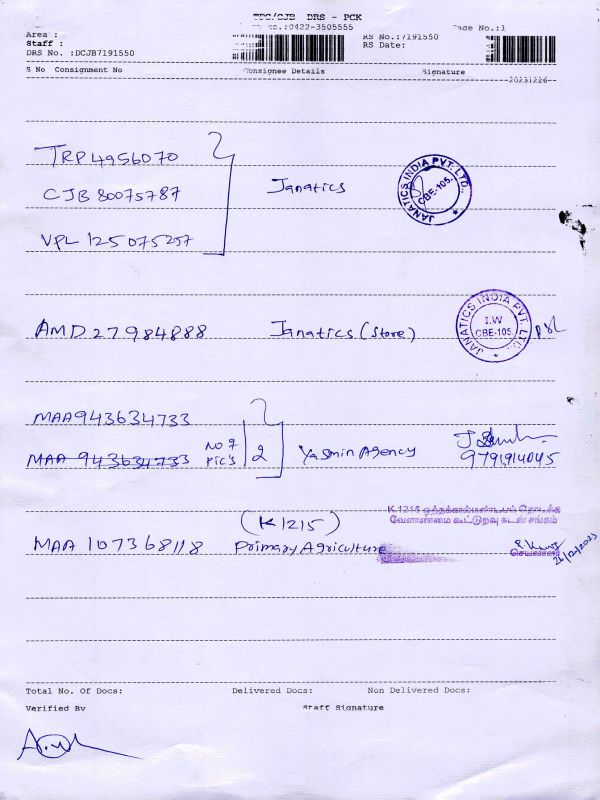 TPC/CJB DRS - PCK
:0422-3505555
Page No.:1
Area :
Staff :
DRS No. :DCJB7191550
RS No.:7191550
RS Date:
S No Consignment No
Consignee Details
Signature
20231226
TRP4956070
CJB80075787
VPL 125075257
Janatics
JANATICS INDIA PVT. LTD.,
CBE-105.
AMD27984888
Janatics (Store)
JANATICS INDIA PVT. LTD.,
I.W
CBE-105.
MAA943634733
MAA 943634733
2
Yasmin Agency
(K1215)
MAA 107368118
Primary Agriculture
K.1215 ஒத்தக்கால்மண்டபம் தொடக்க
வேளாண்மை கூட்டுறவு கடன் சங்கம்
செயலாளர்
26/12/2023
Total No. Of Docs:
Delivered Docs:
Non Delivered Docs:
Verified By
Staff Signature